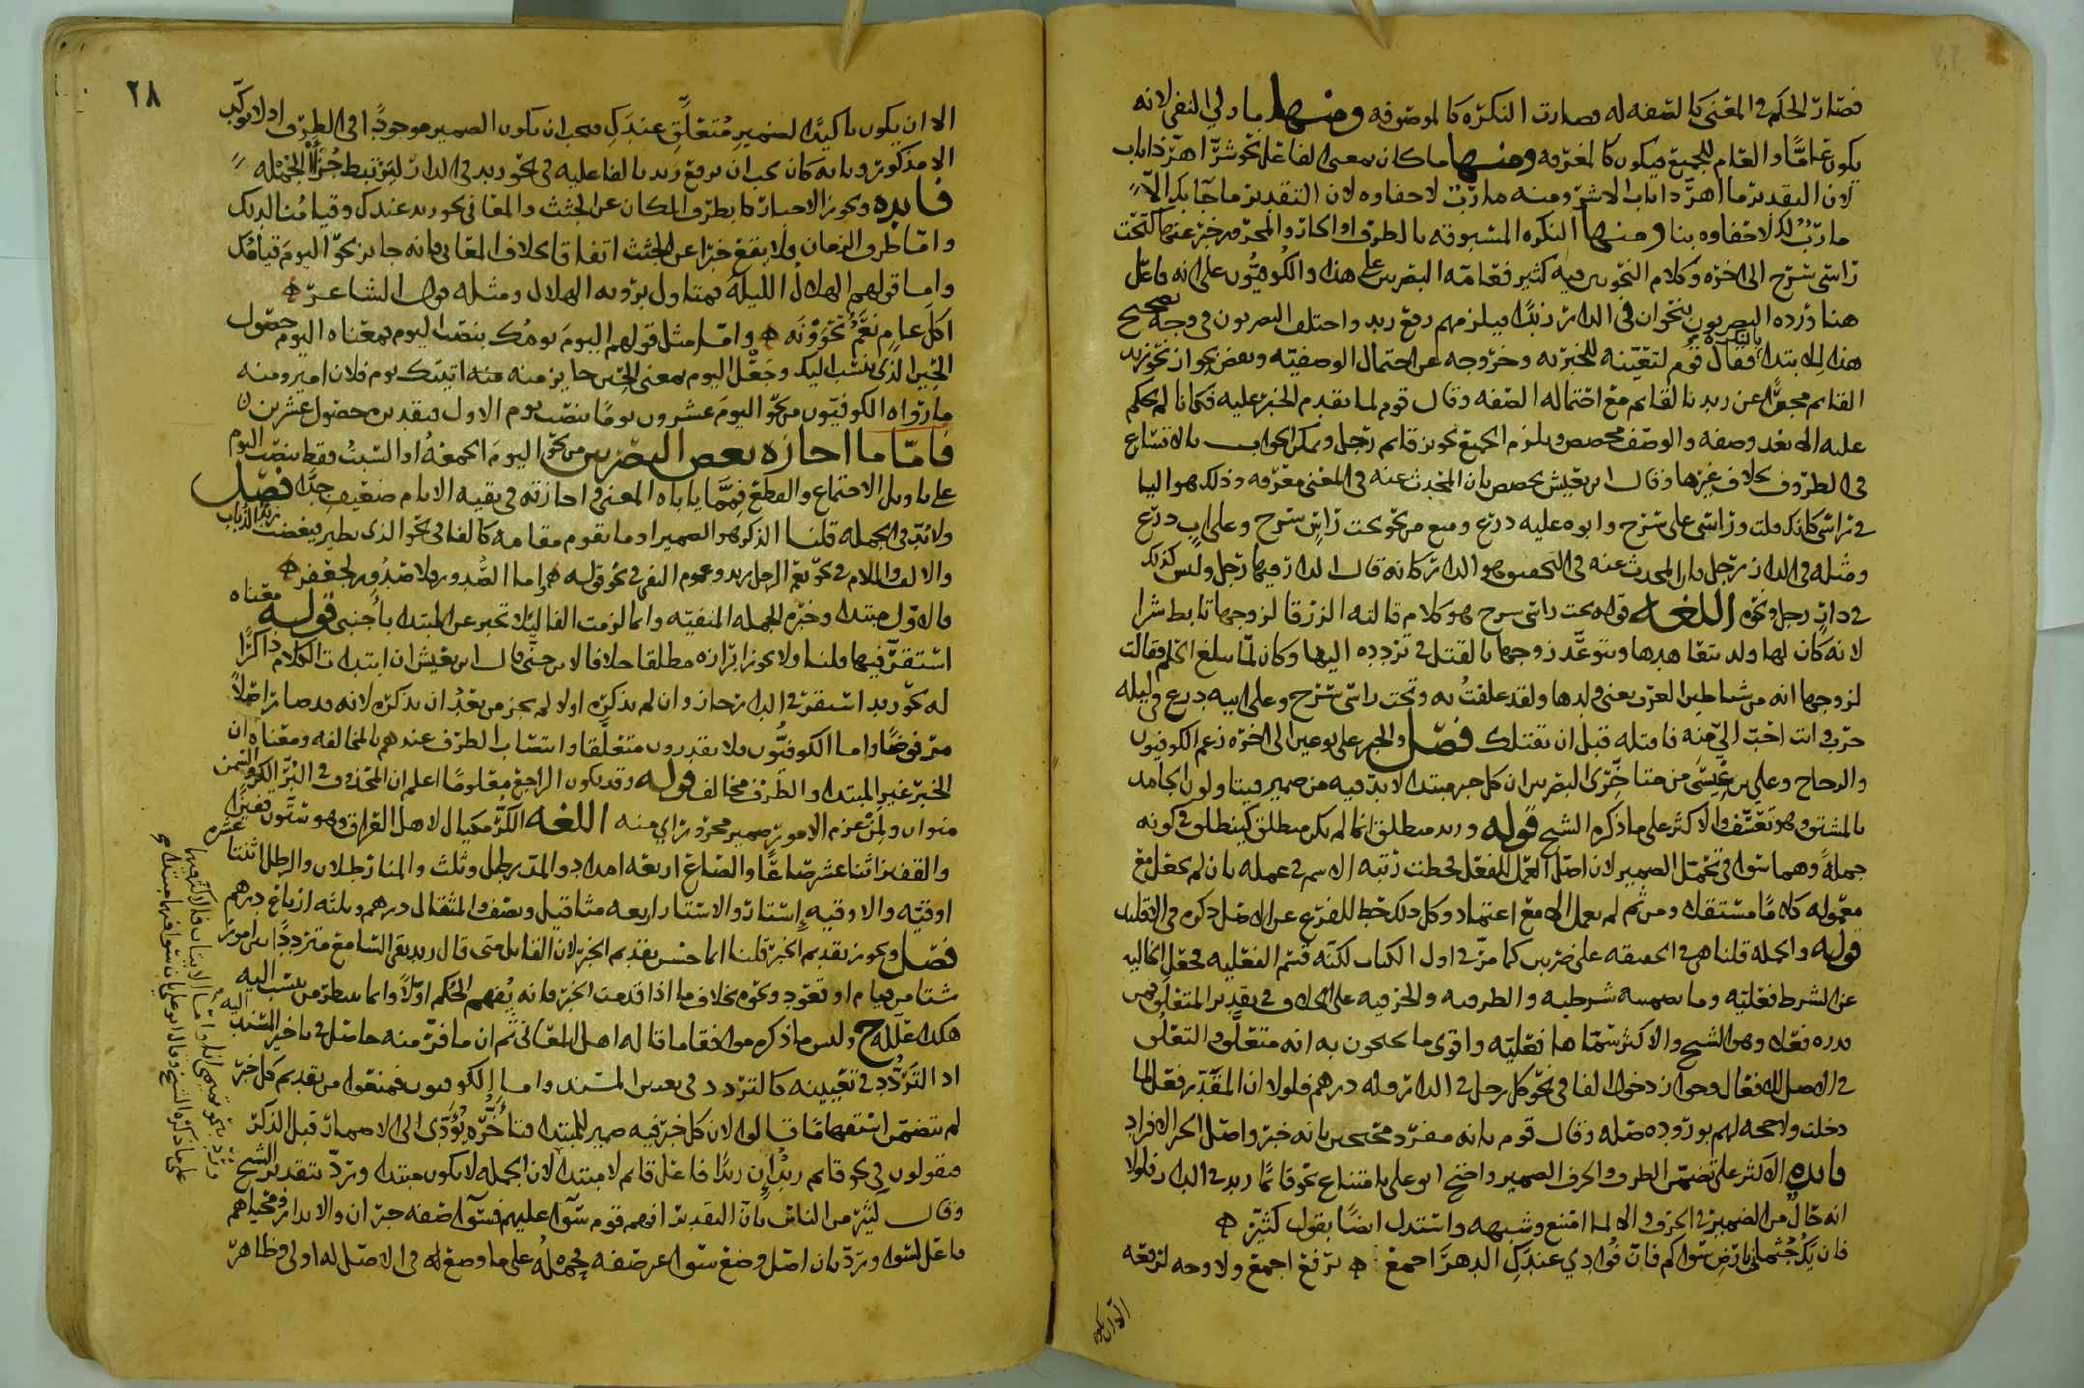 فصار الحكم في المعنى كالصفه له فصارت النكره كالموصوفه ومنها ما ولي النفي لانه
يكون عامًّا والعام للجميع فيكون كالمعرفه ومنها ما كان بمعنى الفاعل نحو شرٌّ اهرّ ذاناب
لان التقدير ما اهرّ ذاناب الا شرّ ومنه مارَبٌ لا حفاوه لان التقدير ما جآ بك الّا
مارَبٌ لك لا حفاوه بنا ومنها النكره المسبوقه بالظرف او الجار والمجرور خبرٌ عنها كتحت
راسي سرج الى اخره وكلام النحويين فيه كثير فعامّه البصريين على هذا والكوفيّون على انه فاعل
هنا ورده البصريون بنحو ان في الدار زيدًا فيلزمهم رفع زيد واختلف البصريون في وجه تصحيح
هذا الابتداء بالنكره فقال قوم لتعيّنه للخبريه وخروجه عن احتمال الوصفيّه ويعضد جواز نحو زيد
القايم مخبرًا عن زيد بالقايم مع احتماله الصفه وقال قوم لما تقدم الخبر عليه فكانا لم يحكم
عليه الا بعد وصفه والوصف مخصص ويلزم الجميع تجويز قايم رجل ويمكن الجواب بالاتساع
في الظروف بخلاف غيرها وقال ابن يعيش تخصص بان المحدث عنه في المعنى معرفه وذلك هو اليا
في راسي كانك قلت وراسي على سرج وابوه عليه درع ومنع من نحو تحت راسٍ سرج وعلى ابٍ درع
ومثله في الدار رجل فان المحدث عنه في التحقيق هو الدار كانه قال الدار فيها رجل وليس كذلك
في دارٍ رجل ونحوه اللغه قوله تحت راسي سرج هو كلام قالته الزرقا لزوجها تابط شرا
لانه كان لها ولد يتعاهدها ويتوعّد زوجها بالقتل في تردده اليها وكان لمّا يبلغ الحلم فقالت
لزوجها انه من شياطين العرب يعني ولدها ولقد علقتُ به وتحت راسي سرج وعلى ابيه درع في ليله
حرب وانت احبّ اليّ منه فاقتله قبل ان يقتلك فصل والخبر على نوعين الى اخره زعم الكوفيون
والزجاج وعلي بن عيسى من متاخّرى البصريين ان كل خبر مبتدا لا بدّ فيه من ضمير فيتاولون الجامد
بالمشتق وهو تعسّف والاكثر على ما ذكره الشيخ قوله وزيد منطلق انما لم يكن منطلق كينطلق في كونه
جملةً وهما سوا في تحمّل الضمير لان اصل العمل للفعل فحطت رتبه الاسم في عمله بان لم يجعل مع
معموله كلامًا مستقلا ومن ثم لم يعمل الا مع اعتماد وكل ذلك حطا للفرع عن الاصل ذكره في الاقليد
قوله والجمله قلنا هي في الحقيقه على ضربين كما مرّ في اول الكتاب لكنّه قسم الفعليه فجعل الخاليه
عن الشرط فعليّه وما تضمنته شرطيه والظرفيه والحرفيه على الخلاف في تقدير المتعلق فمن
قدره فعلا وهو الشيخ والاكثر سمّاها فعليّه واقوى ما يحتجون به انه متعلَّق والتعلق
في الاصل للافعال وجواز دخول الفا في نحو كل رجل في الدار فله درهم فلولا ان المقدّر فعل لما
دخلت ولا حجه لهم بوروده صله وقال قوم بانه مفرد محتجين بانه خبر واصل الخبر الافراد
فايده الاكثر على تضمّن الظرف والحرف الضمير واحتج ابو علي بامتناع نحو قايمًا زيد في الدار فلولا
انه حالٌ من الضمير في الحرف والا لما امتنع وشبهه واستدل ايضًا بقول كثيّر
فان يَكُ جُثماني بارضٍ سواكم فان فؤادي عندكِ الدهرَ اجمعُ برفع اجمع ولا وجه لرفعه
الا ان يكون تاكيدًا لضمير مُتعلَّقِ عندَكِ فيجب ان يكون الضمير موجودًا في الظرف اولا يوكّد
الا مذكور وبانه كان يجب ان يرفع زيد بالفاعليه في نحو زيد في الدار ليرتبط جُزآ الجمله
فايده ويجوز الاخبار بظرف المكان عن الجثث والمعاني نحو زيد عندك وقيامُنا لديك
وامّا ظرف الزمان فلا يقع خبرًا عن الجثث اتفاقا بخلاف المعاني فانه جايز نحو اليومَ قيامُك
واما قولهم الهلالُ الليلَه فمتاول برؤيه الهلال ومثله قول الشاعر
اكلَّ عامٍ نعَمٌ تحوونَه وامّا مثل قولهم اليومَ يومُك بنصب اليوم فمعناه اليوم حصول
الخير الذي ينسب اليك وجَعْل اليوم بمعنى الخير جايز منه منه اتيتك يوم فلان امير ومنه
ما رواه الكوفيّون من نحو اليومَ عشرون يومًا بنصب يوم الاول فتقديره حصول عشرين
فامّا ما اجازه بعض البصريين من نحو اليومَ الجمعهُ او السبتُ فقط بنصب اليوم
على تاويل الاجتماع والقطع فممّا ياباه المعنى واجازته في بقيه الايام ضعيف جدًّا فصل
ولا بُدّ في الجمله قلنا الذكر هو الضمير او ما يقوم مقامه كالفا في نحو الذي يطير فيغضب زيدٌ الذباب
والالف واللام في نحو نعم الرجل زيد وعموم النفي في نحو قوله فاما الصُّدور لا صدُور لجعفر
فالاول مبتدا وخبره الجمله المنفيّه وانما لزمت الفا لئلا تخبر عن المبتدا بأجنبي قوله معناه
استقرّ فيها قلنا ولا يجوز ابرازه مطلقا خلافا لابن جنّي قال ابن يعيش ان ابتدات الكلام ذاكرًا
له نحو زيد استقر في الدار جاز وان لم يذكره اولا لم يجز من بَعدُ ان يذكره لانه قد صار اصلًا
مرفوضًا واما الكوفيُّون فلا يقدرون متعلَّقا وانتصاب الظرف عندهم بالمخالفه ومعناه ان
الخبر غير المبتدا والظرف مخالف قوله وقد يكون الراجع معلومًا اعلم ان المحذوف في البُرّ الكر والسمن
منوان ولمن عزم الامور ضمير مجرور اي منه اللغه الكُرُّ مكيال لاهل العراق وهو ستّون قفيزًا
والقفيز اثنا عشر صاعًا والصاع اربعه امداد والمدّ رطل وثلث والمنا رطلان والرطل اثنتا عشره
اوقيّه والاوقيه إستار والاستار اربعه مثاقيل ونصف والمثقال درهم وثلثه ارباع درهم
فصل ويجوز تقديم الخبر قلنا انما حسن تقديم الخبر لان القايل متى قال زيد بقي السامع متردّدًا بين امور
شتا من قيام او قعود ونحوه بخلاف ما اذا قدمت الخبر فانه يُفهم الحُكم اوّلًا وانما ينتظر من ينسب اليه
هكذا علّله ح وليس ما ذكره موافقا ما قاله اهل المعاني ثم ان ما فرّ منه حاصل في تاخير المسند اليه
اذ التردُّد في تعيينه كالتردد في تعيين المسند واما الكوفيون فمنعوا من تقديم كل خبر
لم يتضمن استفهامًا قالوا لان كل خبر فيه ضمير للمبتدا فتاخّره يُؤدّي الى الاضمار قبل الذكر
فيقولون في نحو قايم زيدٌ ان زيدًا فاعل قايم لا مبتدا لان الجمله لا يكون مبتدا ويردّ بتقدير الشيخ
وقال كثير من الناس بان التقدير انهم قوم سوآ عليهم فسوآ صفه خبر ان والانذار ومحياهم
فاعل لسوا ويردّ بان اصل وضع سوا غير صفه فحمله على ما وضع له في الاصل له اولى وظاهر